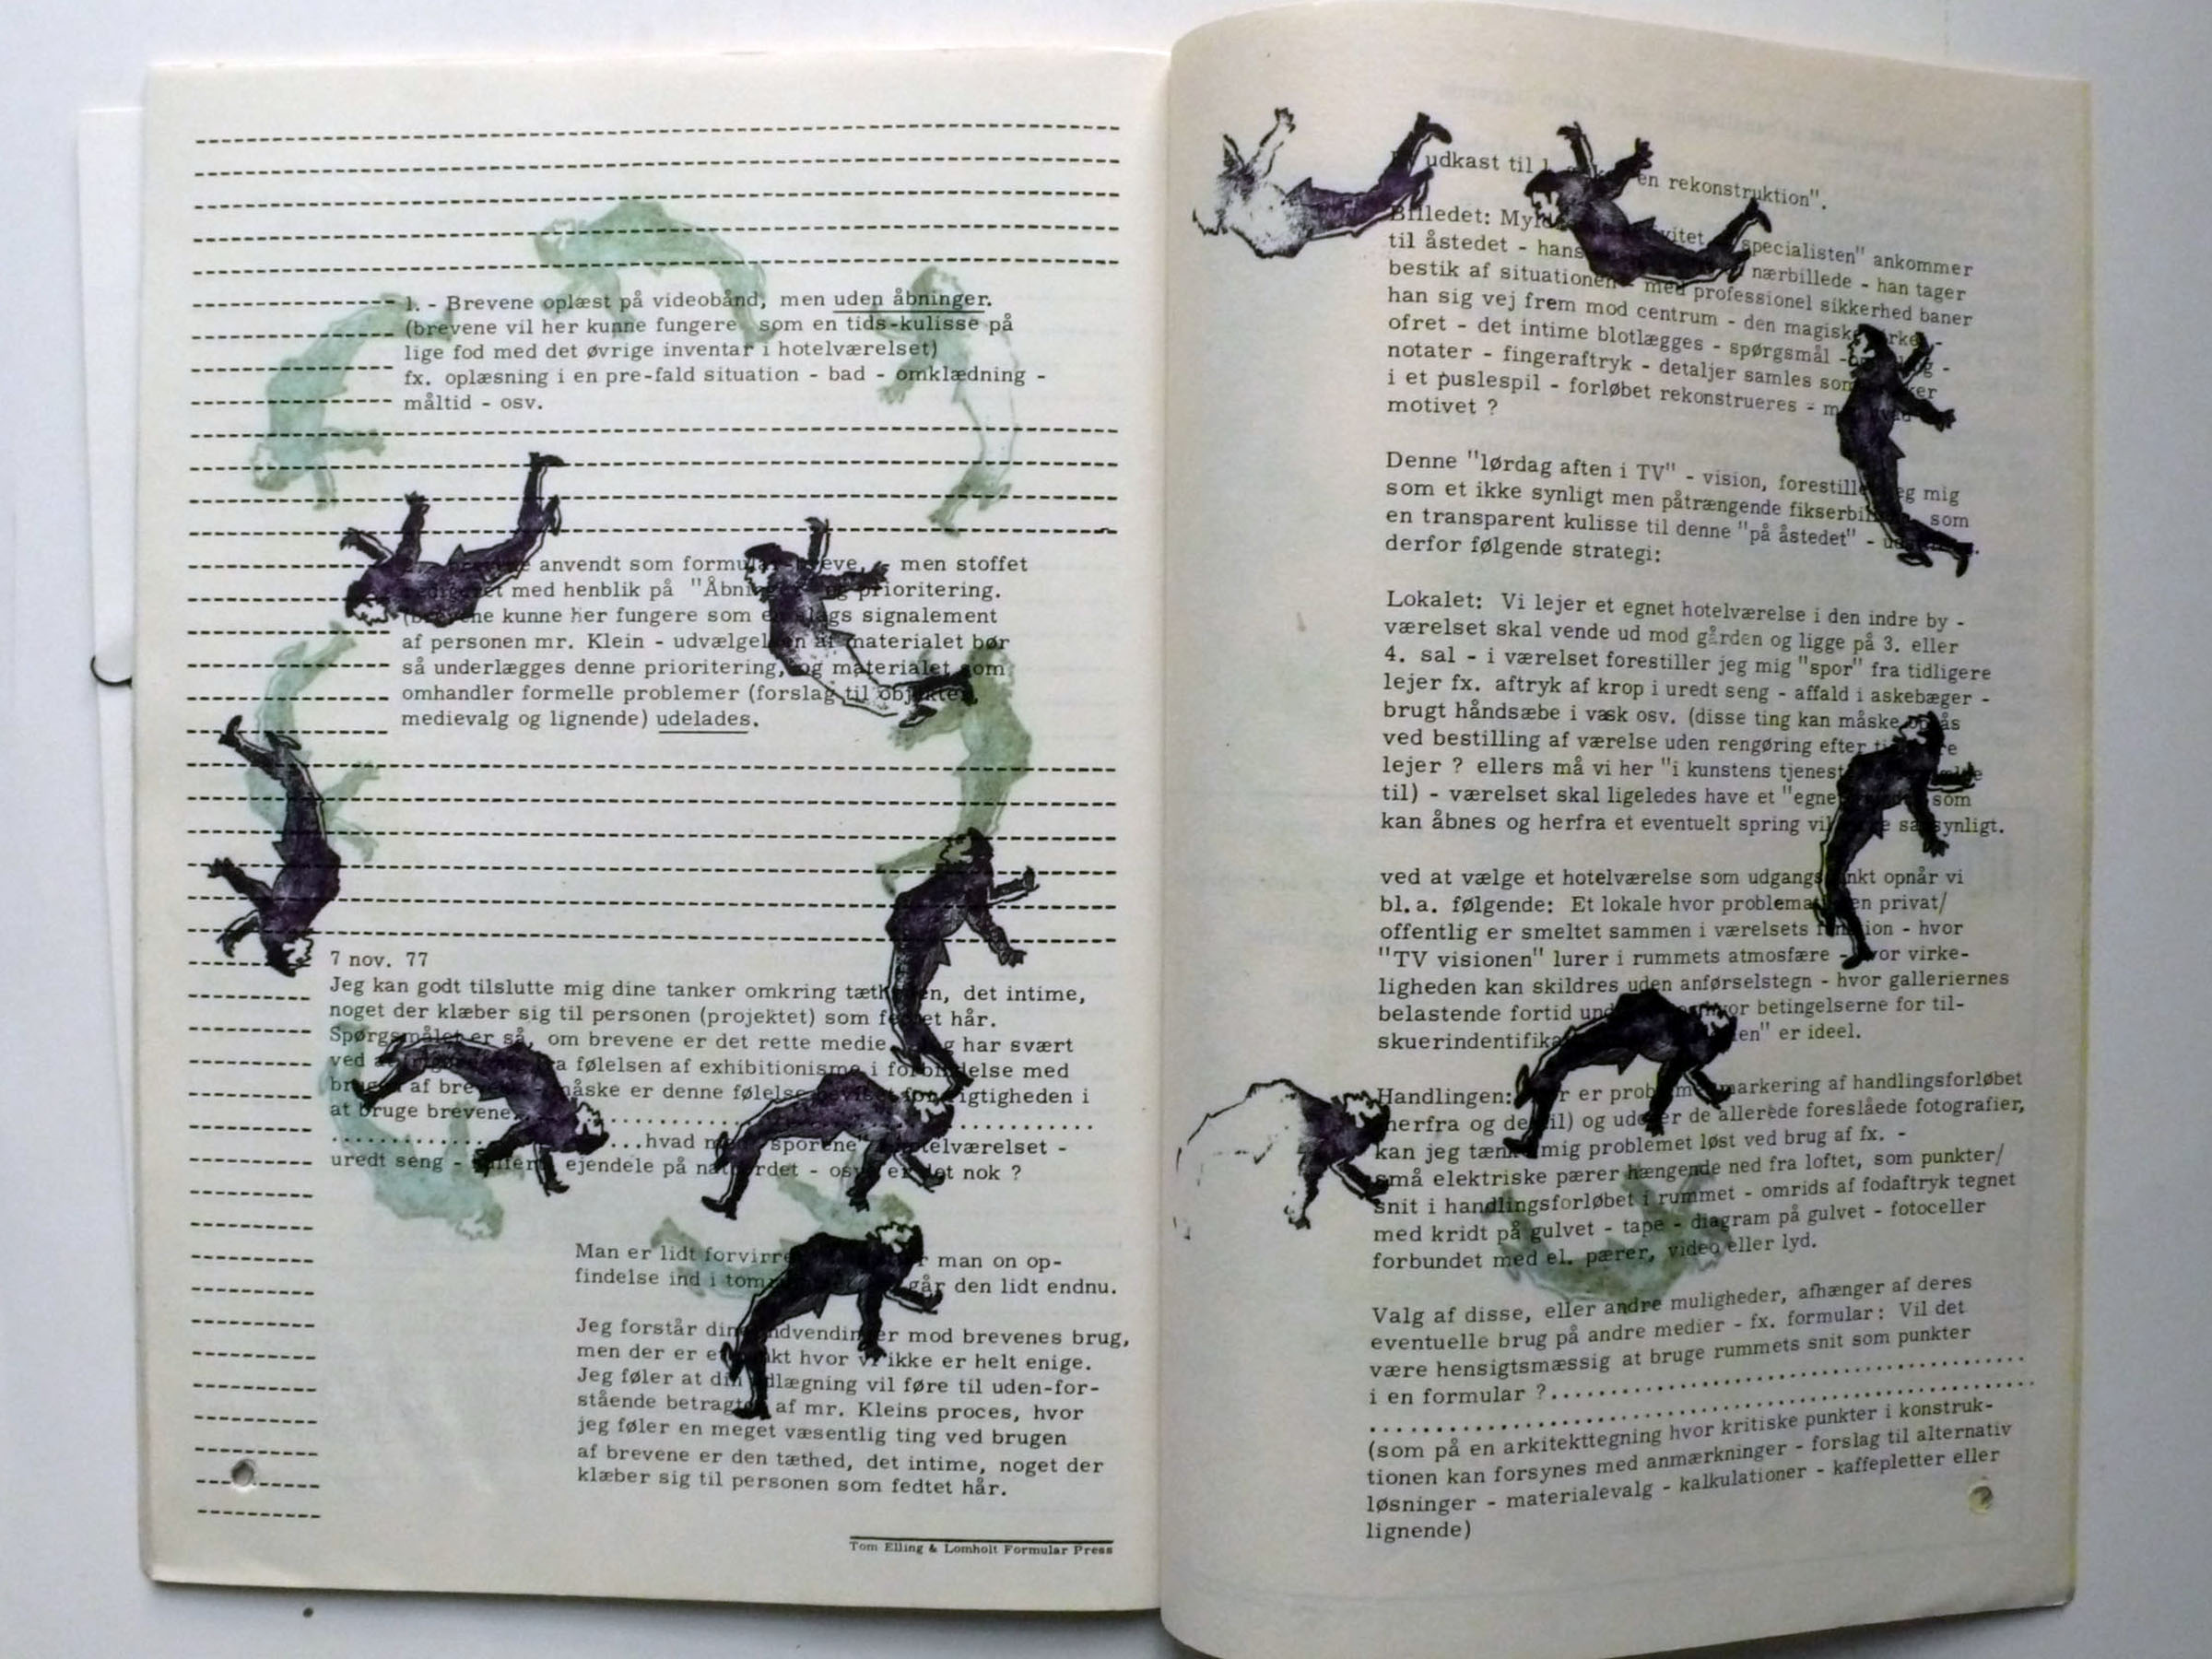 1. - Brevene oplæst på videobånd, men uden åbninger.
(brevene vil her kunne fungere som en tids-kulisse på
lige fod med det øvrige inventar i hotelværelset)
fx. oplæsning i en pre-fald situation - bad - omklædning -
måltid - osv.
anvendt som formular-breve, - men stoffet
redigeret med henblik på "Åbninger" og prioritering.
(brevene kunne her fungere som en slags signalement
af personen mr. Klein - udvælgelsen af materialet bør
så underlægges denne prioritering, og materialet som
omhandler formelle problemer (forslag til objekter
medievalg og lignende) udelades.
7 nov. 77
Jeg kan godt tilslutte mig dine tanker omkring tætheden, det intime,
noget der klæber sig til personen (projektet) som fedtet hår.
Spørgsmålet er så, om brevene er det rette medie har svært
ved a følelsen af exhibitionisme i forbindelse med
brugen af brevene måske er denne følelse beviset for rigtigheden i
at bruge brevene. ..............................
...............hvad med "sporene" i hotelværelset -
uredt seng - ejendele på natbordet - osv. er det nok ?
Man er lidt forvirret man on op-
findelse ind i tom går den lidt endnu.
Jeg forstår dine indvendinger mod brevenes brug,
men der er et punkt hvor vi ikke er helt enige.
Jeg føler at din udlægning vil føre til uden-for-
stående betragten af mr. Kleins proces, hvor
jeg føler en meget væsentlig ting ved brugen
af brevene er den tæthed, det intime, noget der
klæber sig til personen som fedtet hår.
Tom Elling & Lomholt Formular Press
udkast til en rekonstruktion".
Billedet: specialisten" ankommer
til åstedet - hans nærbillede - han tager
bestik af situationen - med professionel sikkerhed baner
han sig vej frem mod centrum - den magiske cirkel -
ofret - det intime blotlægges - spørgsmål -
notater - fingeraftryk - detaljer samles som brikker
i et puslespil - forløbet rekonstrueres - men hvad
motivet ?
Denne "lørdag aften i TV" - vision, forestiller jeg mig
som et ikke synligt men påtrængende fikserbillede, som
en transparent kulisse til denne "på åstedet" -
derfor følgende strategi:
Lokalet: Vi lejer et egnet hotelværelse i den indre by -
værelset skal vende ud mod gården og ligge på 3. eller
4. sal - i værelset forestiller jeg mig "spor" fra tidligere
lejer fx. aftryk af krop i uredt seng - affald i askebæger -
brugt håndsæbe i vask osv. (disse ting kan måske opnås
ved bestilling af værelse uden rengøring efter tidligere
lejer ? ellers må vi her "i kunstens tjeneste"
til) - værelset skal ligeledes have et "egnet som
kan åbnes og herfra et eventuelt spring
ved at vælge et hotelværelse som udgangspunkt opnår vi
bl.a. følgende: Et lokale hvor problematikken privat/
offentlig er smeltet sammen i værelsets funktion - hvor
"TV visionen" lurer i rummets atmosfære - hvor virke-
ligheden kan skildres uden anførselstegn - hvor galleriernes
belastende fortid hvor betingelserne for til-
skuerindentifikation er ideel.
Handlingen: er markering af handlingsforløbet
(herfra og dertil) og udover de allerede foreslåede fotografier,
kan jeg tænke mig problemet løst ved brug af fx. -
små elektriske pærer hængende ned fra loftet, som punkter/
snit i handlingsforløbet i rummet - omrids af fodaftryk tegnet
med kridt på gulvet - tape - diagram på gulvet - fotoceller
forbundet med el. pærer, video eller lyd.
Valg af disse, eller andre muligheder, afhænger af deres
eventuelle brug på andre medier - fx. formular: Vil det
være hensigtsmæssig at bruge rummets snit som punkter
i en formular ?..............................
..............................
(som på en arkitekttegning hvor kritiske punkter i konstruk-
tionen kan forsynes med anmærkninger - forslag til alternativ
løsninger - materialevalg - kalkulationer - kaffepletter eller
lignende)